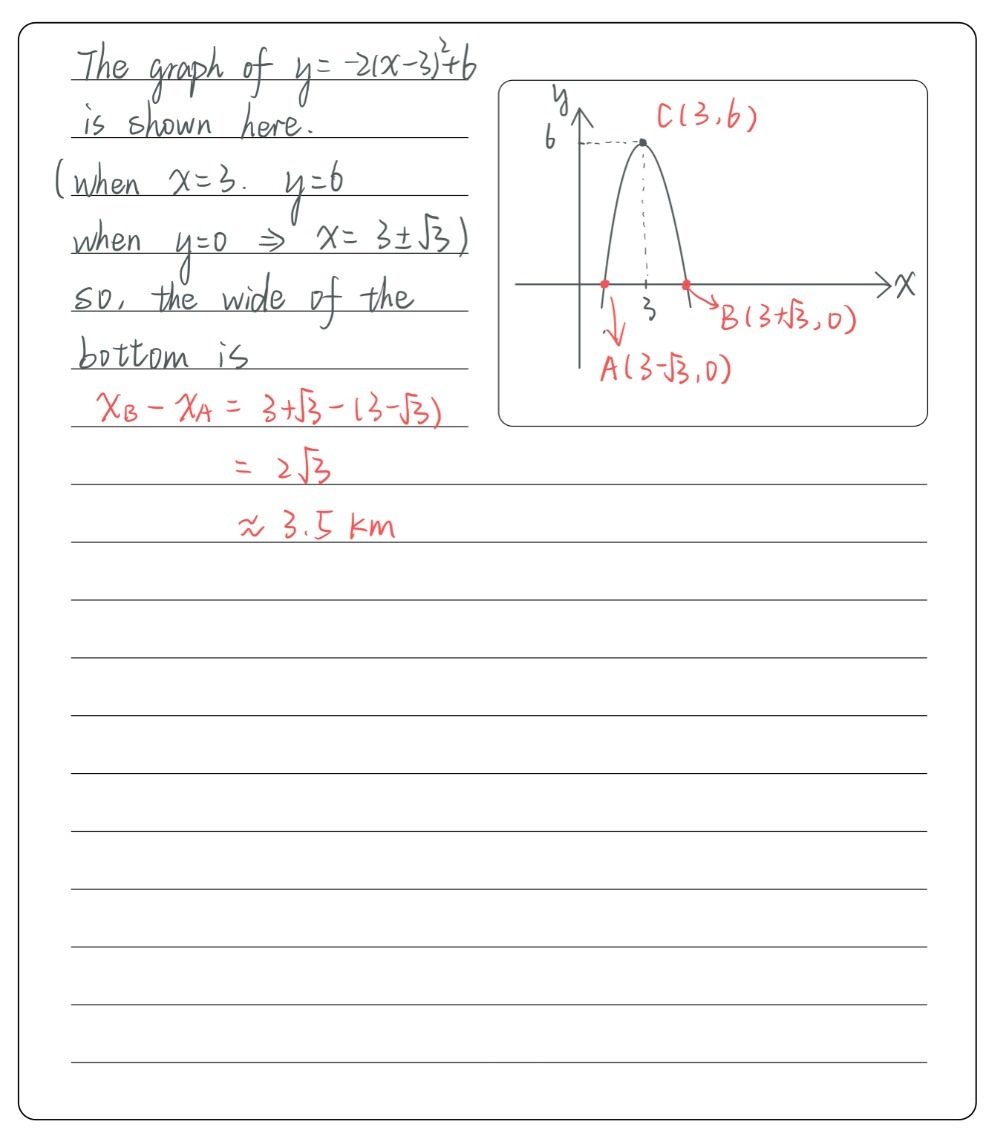 The graph of y = -2(x-3)²+6
is shown here.
(when x=3. y=6
when y=0 ⇒ x= 3±√3)
so, the wide of the
bottom is
x_B - x_A = 3+√3-(3-√3)
= 2√3
≈ 3.5 km
y
C(3,6)
6
x
3
B(3+√3,0)
A(3-√3,0)